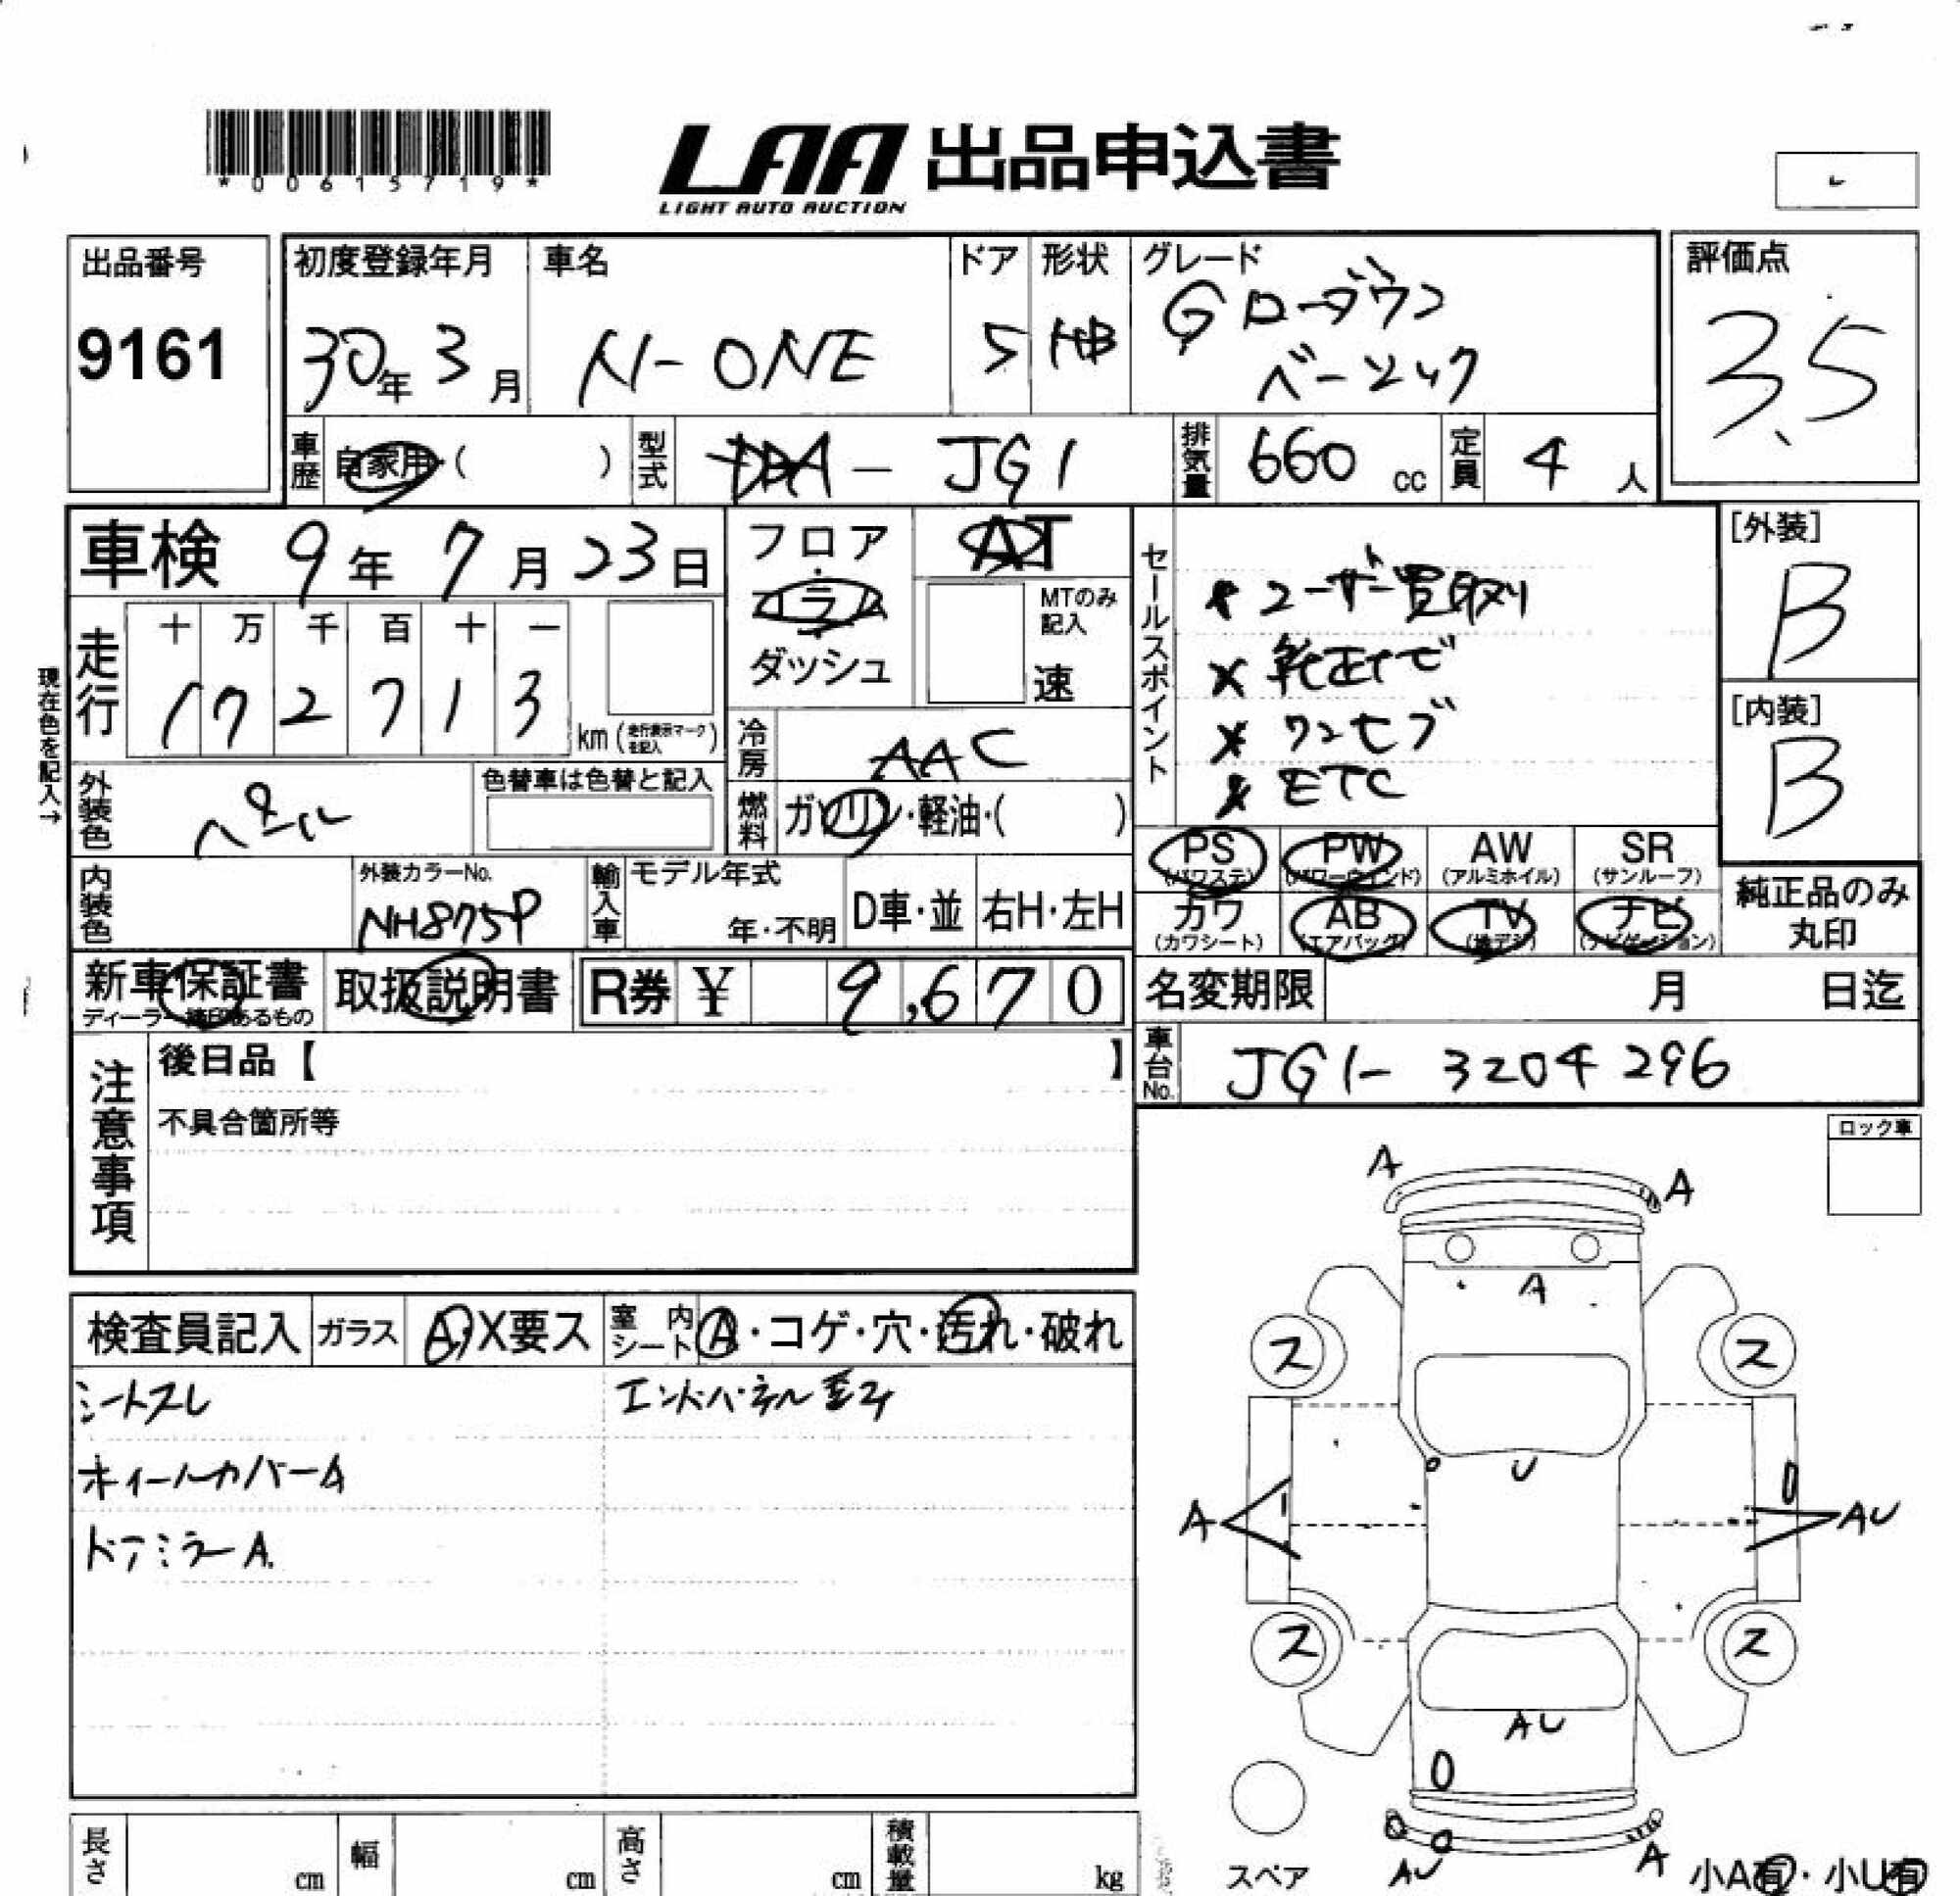 *00615719*
LAA 出品申込書
LIGHT AUTO AUCTION
出品番号
9161
初度登録年月
30年 3月
車名
N-ONE
ドア
5
形状
HB
グレード
Gローダウン
ベーシック
評価点
3.5
車歴
自家用・( )
型式
DBA - JG1
排気量
660 cc
定員
4 人
車検 9年 7月 23日
フロア
コラム
ダッシュ
AT
MTのみ
記入
速
セールスポイント
* ユーザー買取り
* 純正ナビ
* ワンセグ
* ETC
[外装]
B
[内装]
B
現在色を記入→
走行
十 万 千 百 十 一
1 7 2 7 1 3
km (走行表示マークを記入)
冷房
AAC
外装色
パール
色替車は色替と記入
燃料
ガソリン・軽油・( )
内装色
外装カラーNo.
NH875P
輸入車
モデル年式
年・不明
D車・並
右H・左H
PS
(パワステ)
PW
(パワーウインド)
AW
(アルミホイル)
SR
(サンルーフ)
カワ
(カワシート)
AB
(エアバッグ)
TV
(地デジ)
ナビ
(ナビゲーション)
純正品のみ
丸印
新車保証書
ディーラー捺印あるもの
取扱説明書
R券 ¥ 9,670
名変期限 月 日迄
車台No.
JG1- 3204296
注意事項
後日品【 】
不具合箇所等
ロック車
検査員記入
ガラス
A・X要ス
室内シート
A・コゲ・穴・汚れ・破れ
シートスレ
ホイールカバーA
ドアミラーA.
エンドパネル歪み
A
A
A
ス
ス
U
A
AU
ス
ス
AU
AU
A
スペア
小A有・小U有
長さ cm
幅 cm
高さ cm
積載量 kg